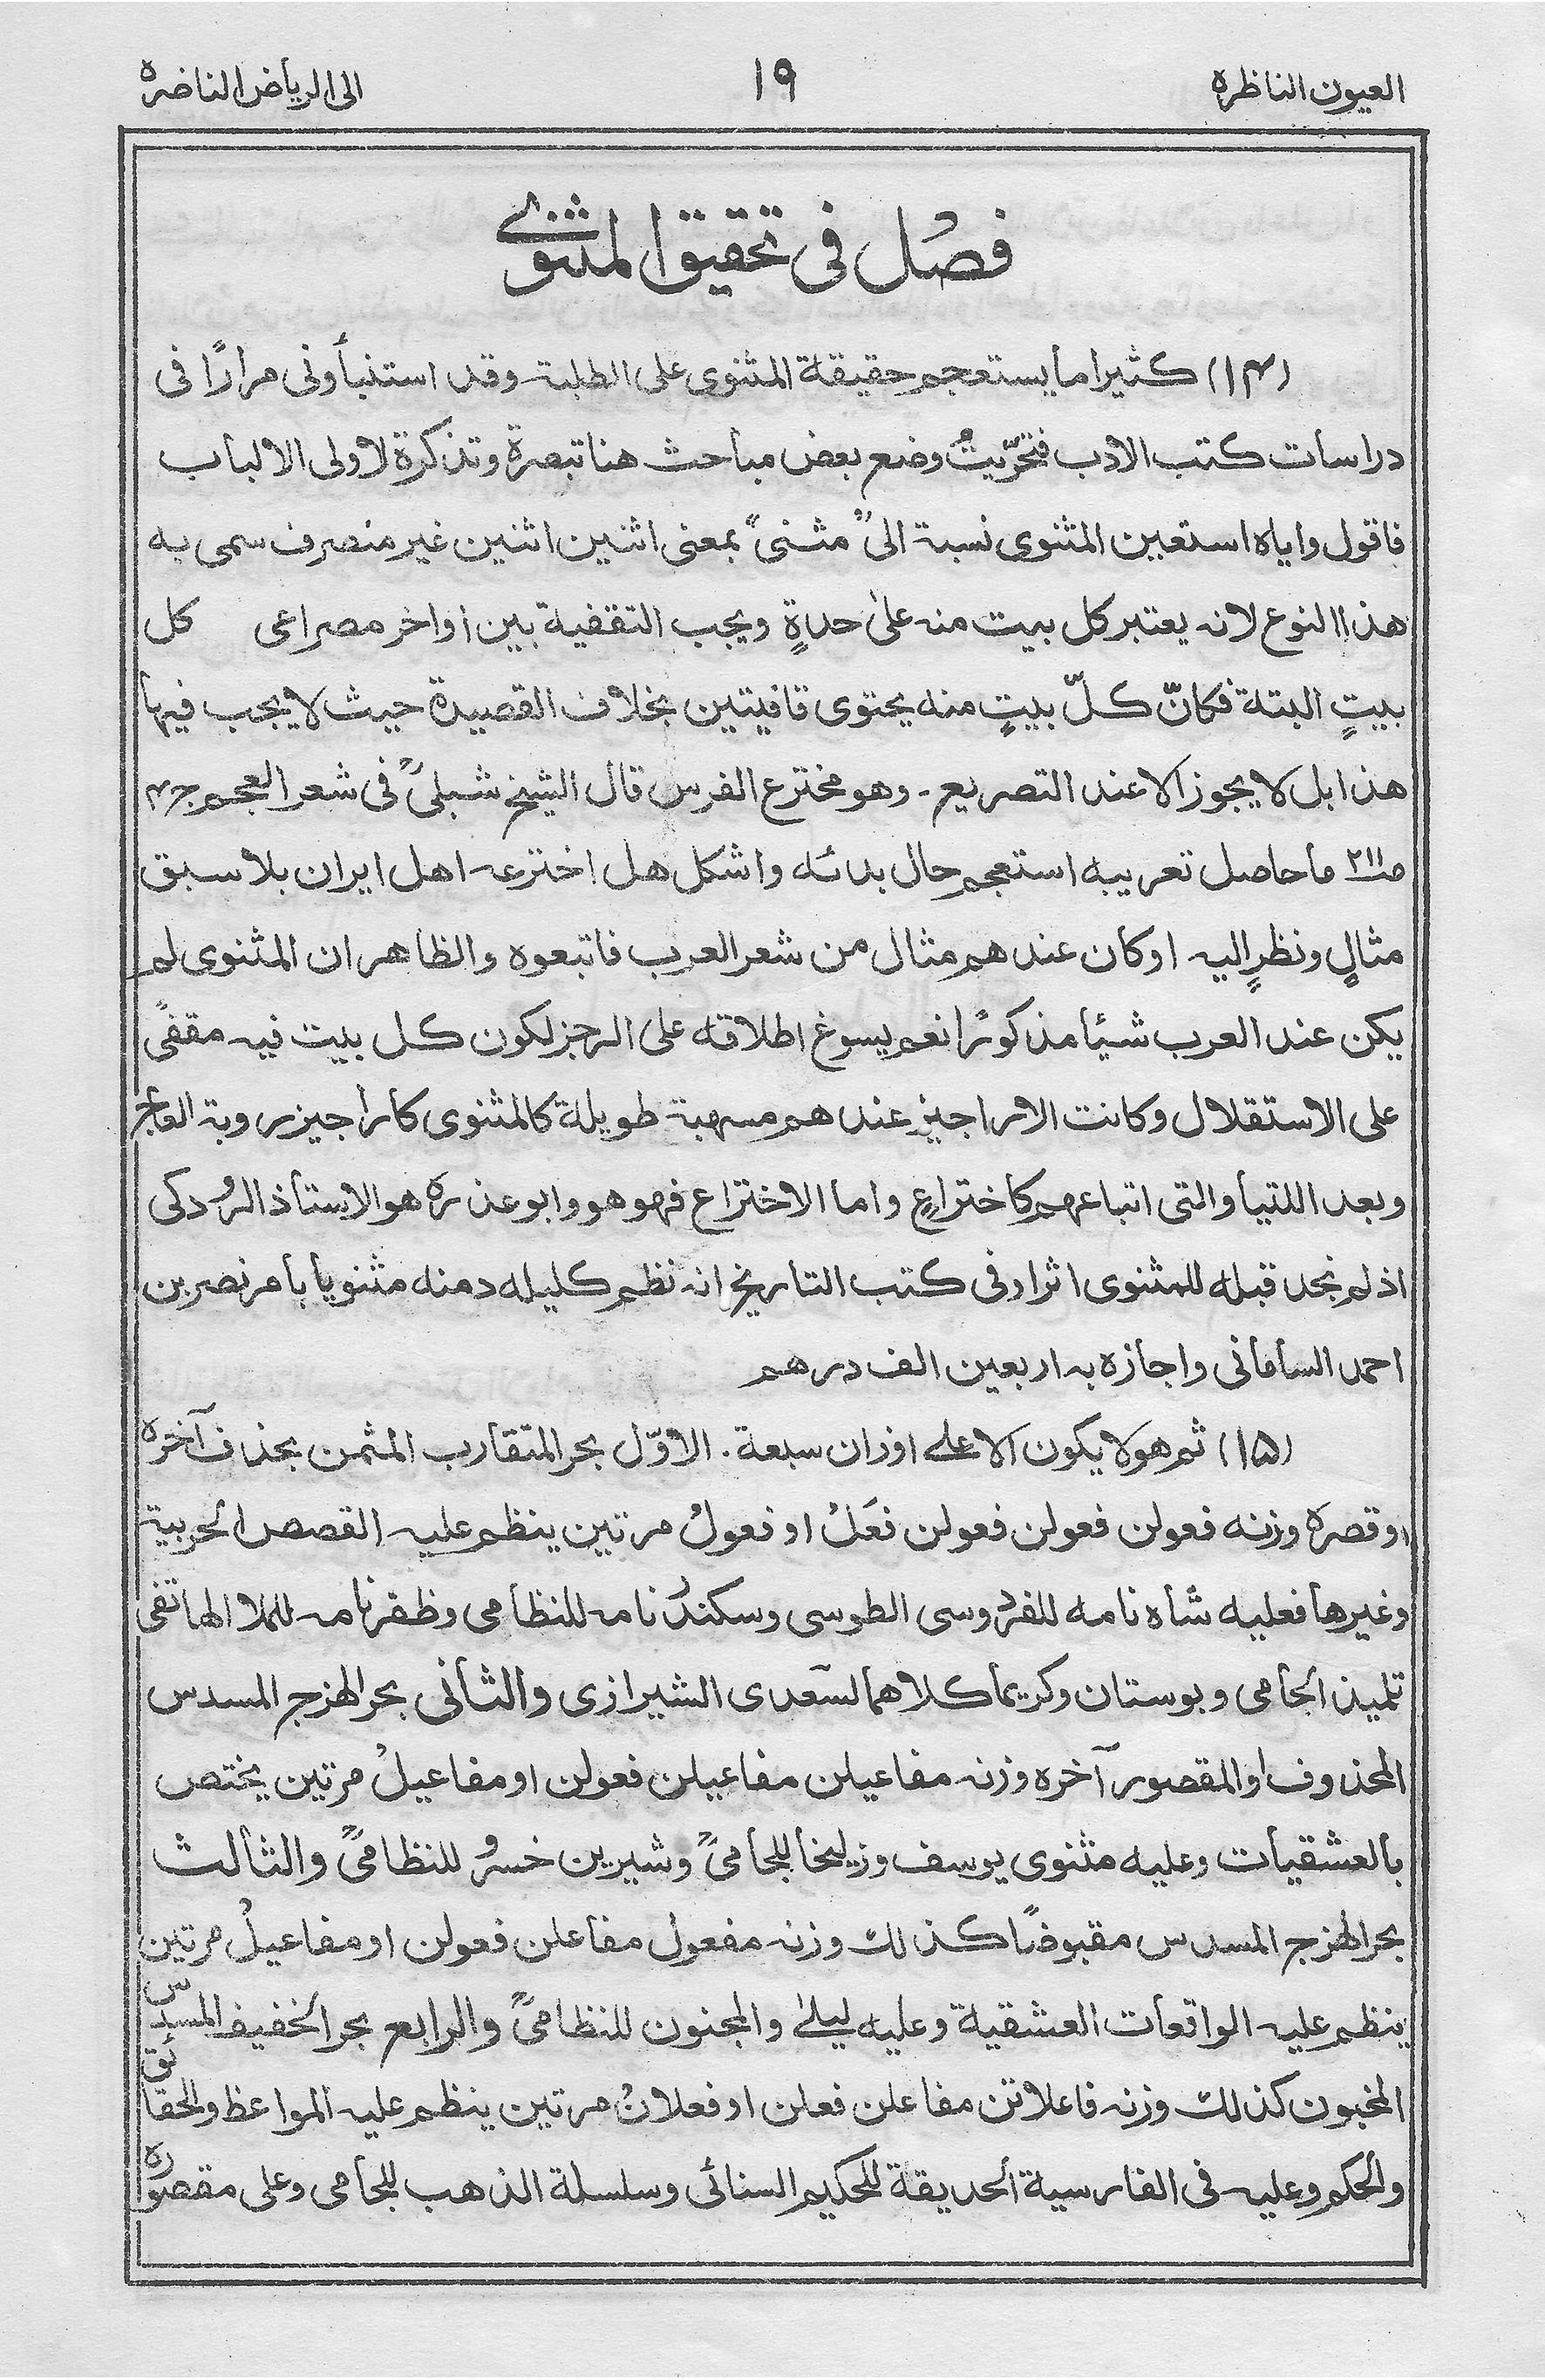 العيون الناظرة ١٩ الى الرياض الناضرة
فصل فى تحقيق المثنوى
(١٤) كثيرا ما يستعجم حقيقة المثنوى على الطلبة وقد استنبأونى مرارًا فى
دراسات كتب الادب فتحرّيتُ وضع بعض مباحث هنا تبصرة وتذكرة لاولى الالباب
فاقول واياه استعين المثنوى نسبة الى "مثنى" بمعنى اثنين اثنين غير منصرف سمى به
هذا النوع لانه يعتبر كل بيت منه علىٰ حدةٍ ويجب التقفية بين اواخر مصراعى كل
بيتٍ البتة فكانّ كلّ بيتٍ منه يحتوى قافيتين بخلاف القصيدة حيث لا يجب فيها
هذا بل لا يجوز الا عند التصريع۔ وهو مخترع الفرس قال الشيخ شبلىؒ فى شعر العجم ج۴
صـ٢١١ ما حاصل تعريبه استعجم حال بدائه واشكل هل اخترعه اهل ايران بلا سبق
مثالٍ ونظرٍ اليه او كان عندهم مثال من شعر العرب فاتبعوه والظاهر ان المثنوى لم
يكن عند العرب شيئا مذكورًا نعم يسوغ اطلاقه على الرجز لكون كل بيت فيه مقفىً
على الاستقلال وكانت الاراجيز عندهم مسهبة طويلة كالمثنوى كاراجيز روبة العاجز
وبعد اللتيا والتى اتباعهم كاختراعٍ واما الاختراع فهو هو وابو عذره هو الاستاذ الرُدكى
اذ لم نجد قبله للمثنوى اثرا وفى كتب التاريخ انه نظم كليله دمنه مثنويا بامر نصر بن
احمد السامانى واجازه به اربعين الف درهم
(١۵) ثم هو لا يكون الا على اوزان سبعة۔ الاوّل بحر المتقارب المثمن بحذف آخره
او قصره وزنه فعولن فعولن فعولن فعَلْ او فعولْ مرتين ينظم عليه القصص الحربية
وغيرها فعليه شاه نامه للفردوسى الطوسى وسكندر نامه للنظامى وظفرنامه للملا الهاتفى
تلميذ الجامى وبوستان وكريما كلاهما لسعدى الشيرازى والثانى بحر الهزج المسدس
المحذوف او المقصور آخره وزنه مفاعيلن مفاعيلن فعولن او مفاعيلْ مرتين يختص
بالعشقيات وعليه مثنوى يوسف وزليخا للجامىؒ وشيرين خسرو للنظامىؒ والثالث
بحر الهزج المسدس مقبوضًا كذلك وزنه مفعول مفاعلن فعولن او مفاعيلْ مرتين
ينظم عليه الواقعات العشقية وعليه ليلىٰ والمجنون للنظامىؒ والرابع بحر الخفيف المسدس
المخبون كذلك وزنه فاعلاتن مفاعلن فعلن او فعلانْ مرتين ينظم عليه المواعظ والحقائق
والحكم وعليه فى الفارسية الحديقة للحكيم السنائى وسلسلة الذهب للجامى وعلى مقصوره